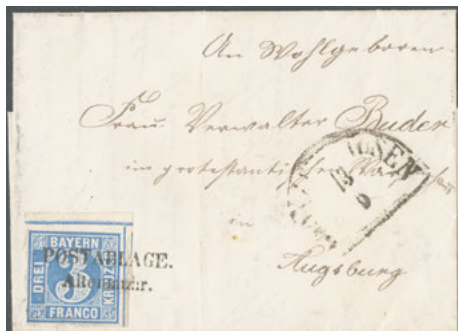 An Wohlgeboren
Frau Verwalter Buder
im protestantischen
in
Augsburg
13
9
BAYERN
DREI
3
KREUZER
FRANCO
POSTABLAGE.